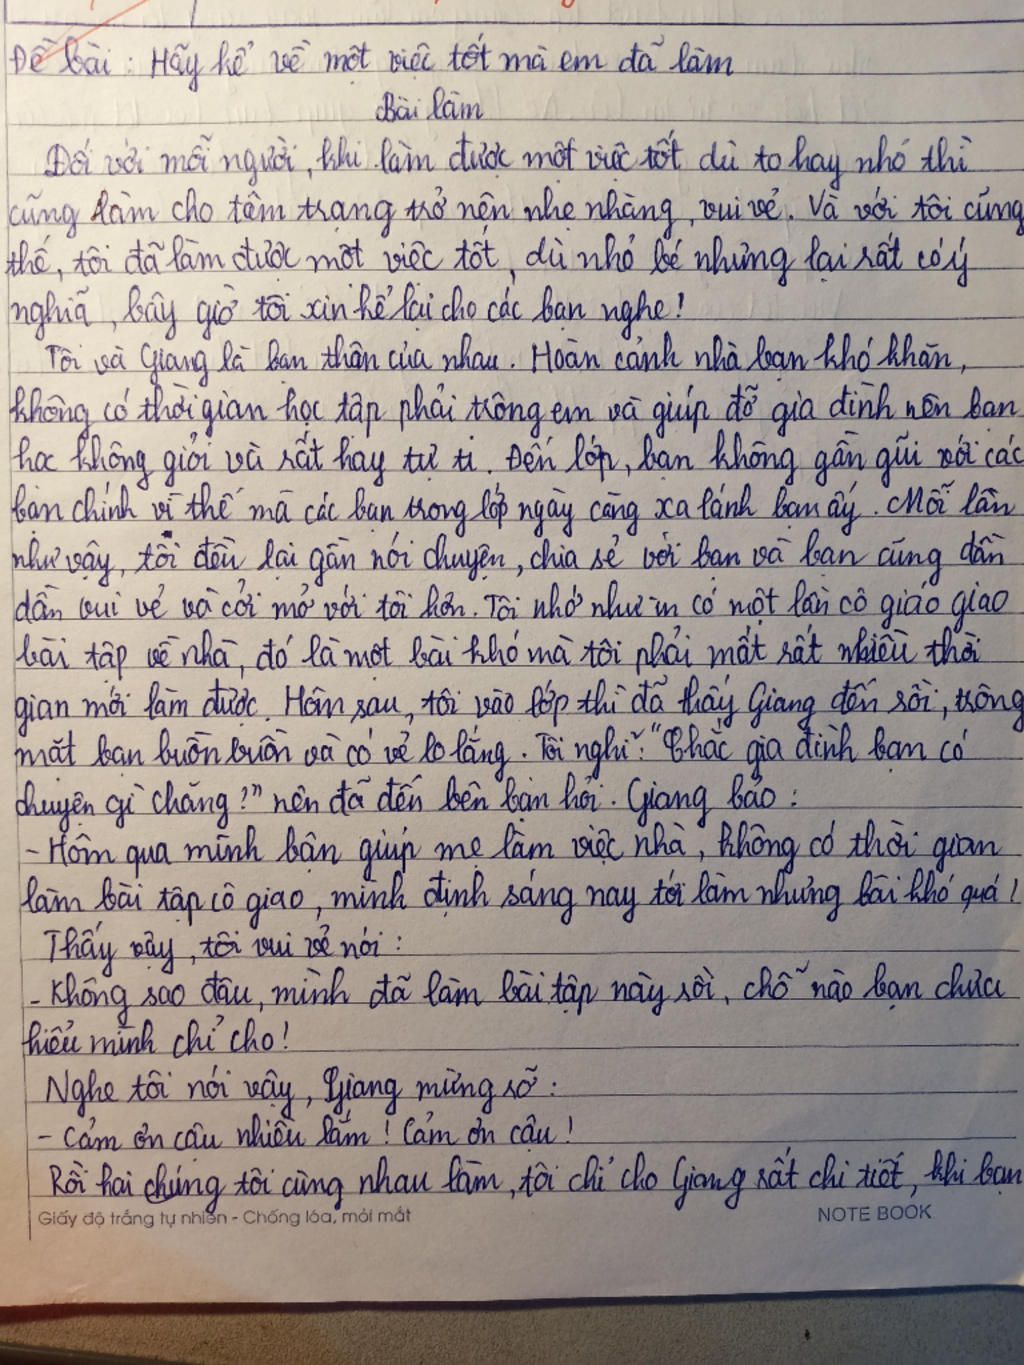 Đề bài: Hãy kể về một việc tốt mà em đã làm
Bài làm
Đối với mỗi người, khi làm được một việc tốt dù to hay nhỏ thì
cũng làm cho tâm trạng trở nên nhẹ nhàng, vui vẻ. Và với tôi cũng
thế, tôi đã làm được một việc tốt, dù nhỏ bé nhưng lại rất có ý
nghĩa, bây giờ tôi xin kể lại cho các bạn nghe!
Tôi và Giang là bạn thân của nhau. Hoàn cảnh nhà bạn khó khăn,
không có thời gian học tập phải trông em và giúp đỡ gia đình nên bạn
học không giỏi và rất hay tự ti. Đến lớp, bạn không gần gũi với các
bạn chính vì thế mà các bạn trong lớp ngày càng xa lánh bạn ấy. Mỗi lần
như vậy, tôi đều lại gần nói chuyện, chia sẻ với bạn và bạn cũng dần
dần vui vẻ và cởi mở với tôi hơn. Tôi nhớ như in có một lần cô giáo giao
bài tập về nhà, đó là một bài khó mà tôi phải mất rất nhiều thời
gian mới làm được. Hôm sau, tôi vào lớp thì đã thấy Giang đến rồi, trông
mặt bạn buồn buồn và có vẻ lo lắng. Tôi nghĩ: "Chắc gia đình bạn có
chuyện gì chăng?" nên đã đến bên bạn hỏi. Giang bảo:
- Hôm qua mình bận giúp mẹ làm việc nhà, không có thời gian
làm bài tập cô giao, mình định sáng nay tới làm nhưng bài khó quá!
Thấy vậy, tôi vui vẻ nói:
- Không sao đâu, mình đã làm bài tập này rồi, chỗ nào bạn chưa
hiểu mình chỉ cho!
Nghe tôi nói vậy, Giang mừng rỡ:
- Cảm ơn cậu nhiều lắm! Cảm ơn cậu!
Rồi hai chúng tôi cùng nhau làm, tôi chỉ cho Giang rất chi tiết, khi bạn
Giấy độ trắng tự nhiên - Chống lóa, mỏi mắt
NOTE BOOK